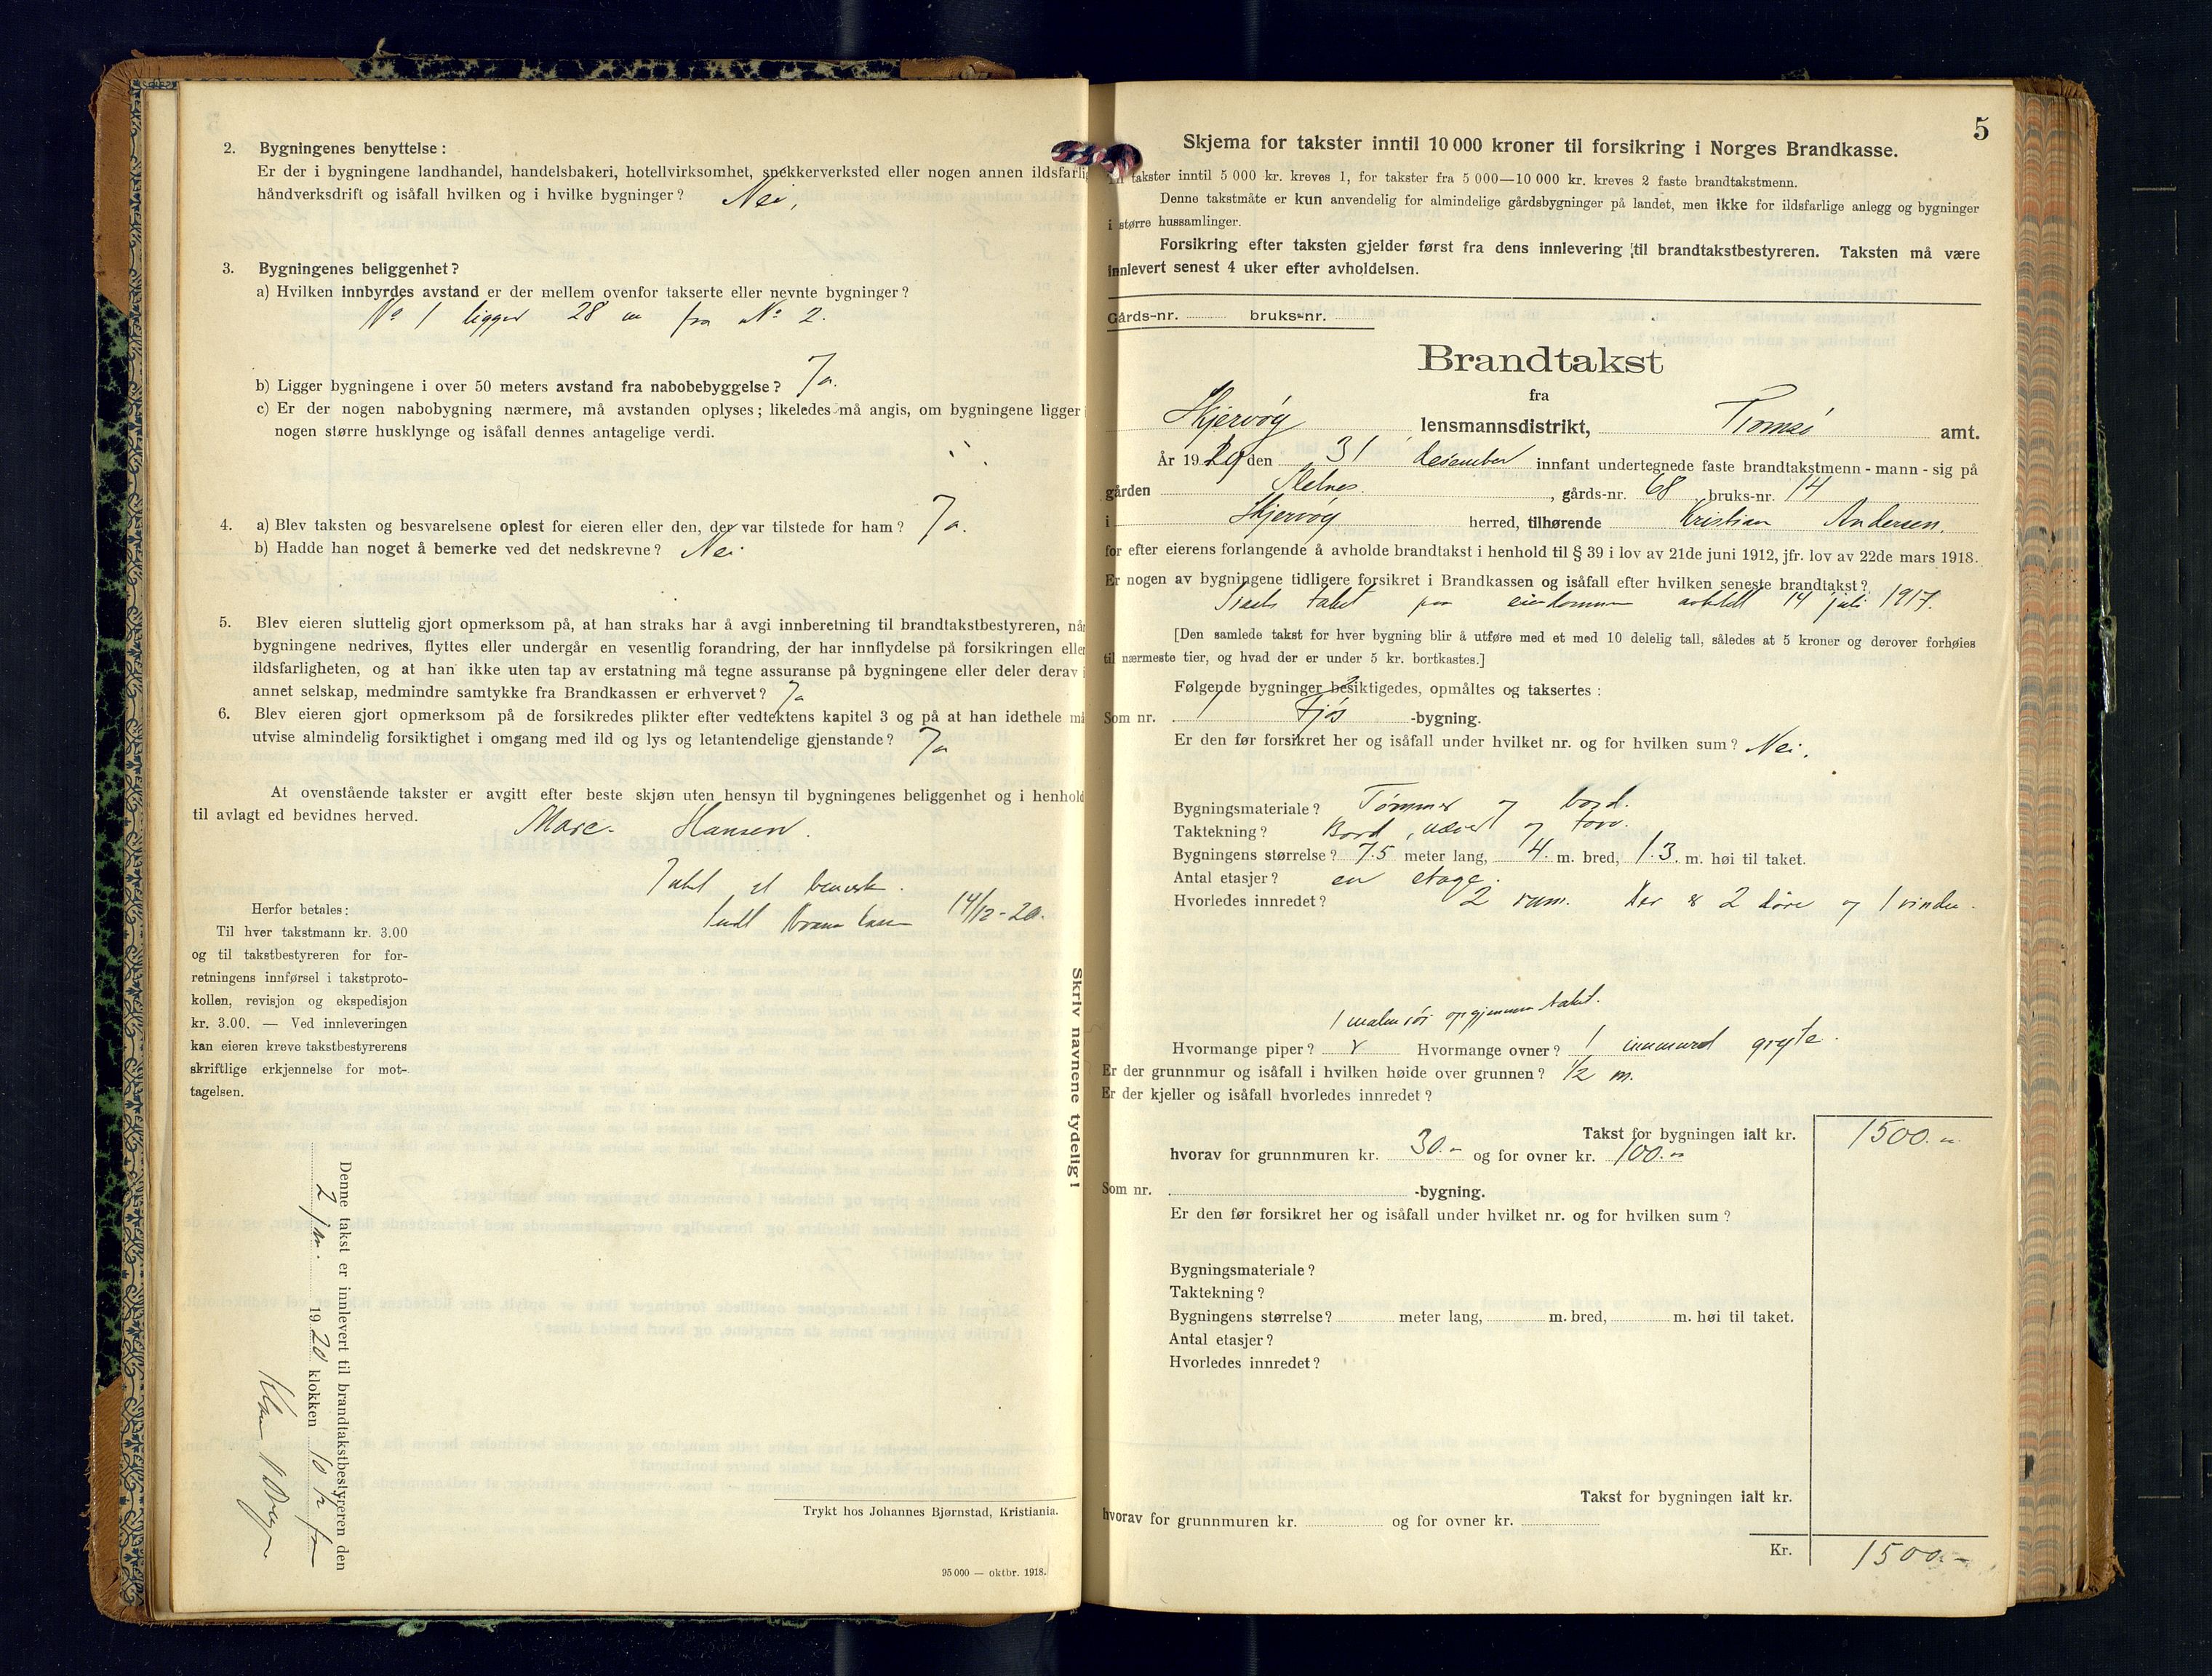 2. Bygningenes benyttelse:
Er der i bygningene landhandel, handelsbakeri, hotellvirksomhet, snekkerverksted eller nogen annen ildsfarlig
håndverksdrift og isåfall hvilken og i hvilke bygninger? Nei,
3. Bygningenes beliggenhet?
a) Hvilken innbyrdes avstand er der mellem ovenfor takserte eller nevnte bygninger?
No 1 ligger 28 m fra No 2.
b) Ligger bygningene i over 50 meters avstand fra nabobebyggelse? Ja.
c) Er der nogen nabobygning nærmere, må avstanden oplyses; likeledes må angis, om bygningene ligger i
nogen større husklynge og isåfall dennes antagelige verdi.
4. a) Blev taksten og besvarelsene oplest for eieren eller den, der var tilstede for ham? Ja.
b) Hadde han noget å bemerke ved det nedskrevne? Nei
5. Blev eieren sluttelig gjort opmerksom på, at han straks har å avgi innberetning til brandtakstbestyreren, når
bygningene nedrives, flyttes eller undergår en vesentlig forandring, der har innflydelse på forsikringen eller
ildsfarligheten, og at han ikke uten tap av erstatning må tegne assuranse på bygningene eller deler derav i
annet selskap, medmindre samtykke fra Brandkassen er erhvervet? Ja
6. Blev eieren gjort opmerksom på de forsikredes plikter efter vedtektens kapitel 3 og på at han idethele må
utvise almindelig forsiktighet i omgang med ild og lys og letantendelige gjenstande? Ja
At ovenstående takster er avgitt efter beste skjøn uten hensyn til bygningenes beliggenhet og i henhold
til avlagt ed bevidnes herved.
Hansen.
Intet at bemerke.
14/12-20.
Herfor betales:
Til hver takstmann kr. 3.00
og til takstbestyreren for for-
retningens innførsel i takstproto-
kollen, revisjon og ekspedisjon
kr. 3.00. — Ved innleveringen
kan eieren kreve takstbestyrerens
skriftlige erkjennelse for mot-
tagelsen.
Denne takst er innlevert til brandtakstbestyreren den
2 jan. 1920 klokken 10
Skriv navnene tydelig!
Trykt hos Johannes Bjørnstad, Kristiania.
95 000 — oktbr. 1918.
5
Skjema for takster inntil 10 000 kroner til forsikring i Norges Brandkasse.
takster inntil 5 000 kr. kreves 1, for takster fra 5 000—10 000 kr. kreves 2 faste brandtakstmenn.
Denne takstmåte er kun anvendelig for almindelige gårdsbygninger på landet, men ikke for ildsfarlige anlegg og bygninger
i større hussamlinger.
Forsikring efter taksten gjelder først fra dens innlevering til brandtakstbestyreren. Taksten må være
innlevert senest 4 uker efter avholdelsen.
Gårds-nr. bruks-nr.
Brandtakst
fra
Skjervøy lensmannsdistrikt, Tromsø amt.
År 1919 den 31 desember innfant undertegnede faste brandtakstmenn - mann - sig på
gården , gårds-nr. 68 bruks-nr. 14
i Skjervøy herred, tilhørende Kristian Andersen.
for efter eierens forlangende å avholde brandtakst i henhold til § 39 i lov av 21de juni 1912, jfr. lov av 22de mars 1918.
Er nogen av bygningene tidligere forsikret i Brandkassen og isåfall efter hvilken seneste brandtakst?
paa eiendommen avholdt 14 juli 1917.
[Den samlede takst for hver bygning blir å utføre med et med 10 delelig tall, således at 5 kroner og derover forhøies
til nærmeste tier, og hvad der er under 5 kr. bortkastes.]
Følgende bygninger besiktigedes, opmåltes og taksertes:
Som nr. 1 Fjøs -bygning.
Er den før forsikret her og isåfall under hvilket nr. og for hvilken sum? Nei.
Bygningsmateriale? Tømmer og bord.
Taktekning? Bord, næver og torv.
Bygningens størrelse? 7.5 meter lang, 4. m. bred, 1.3. m. høi til taket.
Antal etasjer? en etage.
Hvorledes innredet? 2 rum. Der er 2 døre og 1 vindu.
opgjennem taket.
Hvormange piper? Hvormange ovner? 1 innmuret gryte.
Er der grunnmur og isåfall i hvilken høide over grunnen? 1/2 m.
Er der kjeller og isåfall hvorledes innredet?
Takst for bygningen ialt kr. 1500.-
hvorav for grunnmuren kr. 30.- og for ovner kr. 100.-
Som nr. -bygning.
Er den før forsikret her og isåfall under hvilket nr. og for hvilken sum?
Bygningsmateriale?
Taktekning?
Bygningens størrelse? meter lang, m. bred, m. høi til taket.
Antal etasjer?
Hvorledes innredet?
Takst for bygningen ialt kr.
hvorav for grunnmuren kr. og for ovner kr.
Kr. 1500.-